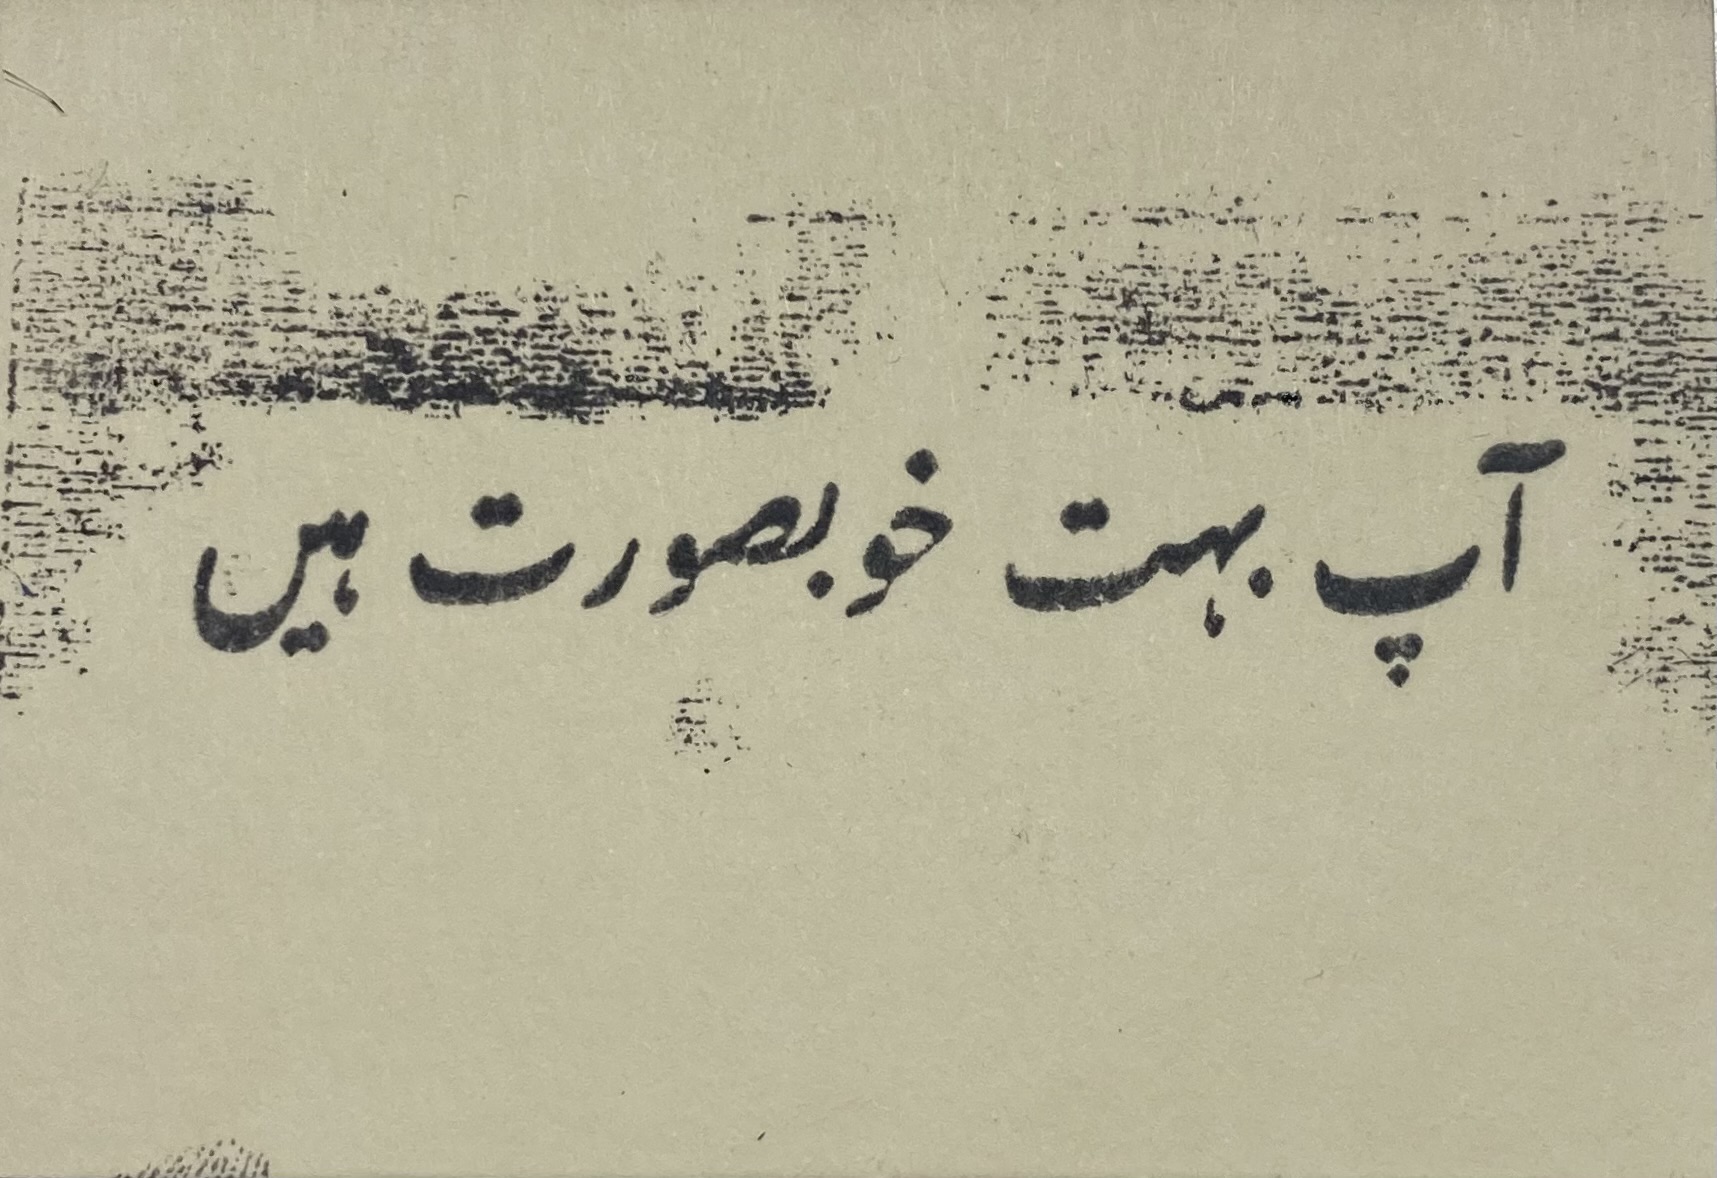 آپ بہت خوبصورت ہیں